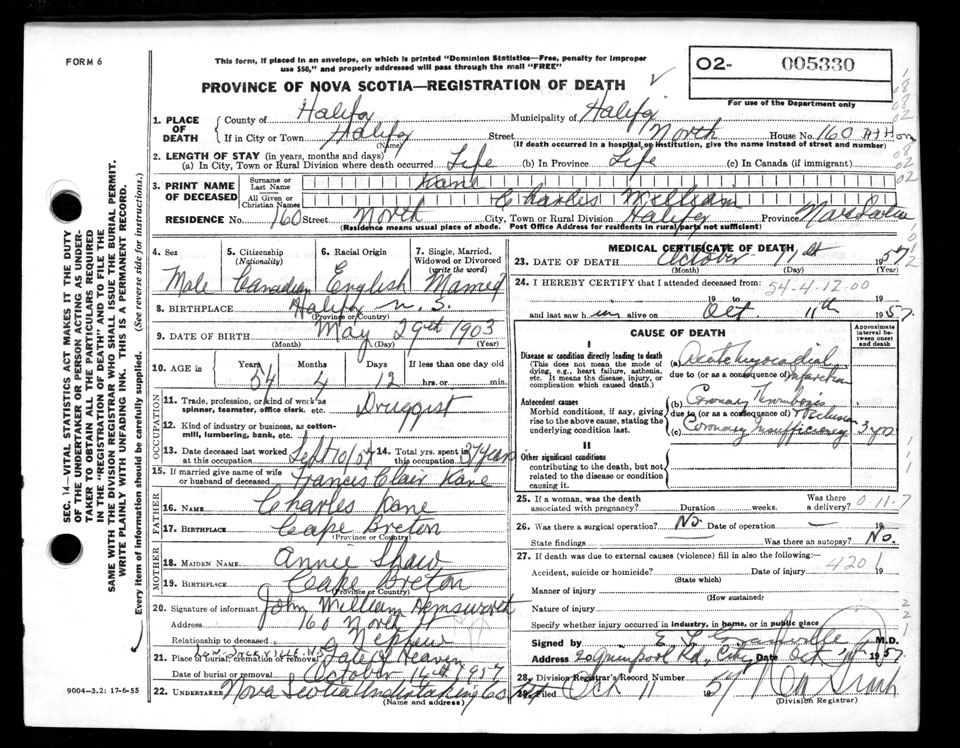 FORM 6
This form, if placed in an envelope, on which is printed "Dominion Statistics—Free, penalty for improper
use $50," and properly addressed will pass through the mail "FREE"
PROVINCE OF NOVA SCOTIA—REGISTRATION OF DEATH
O2- 005330
For use of the Department only
SEC. 14—VITAL STATISTICS ACT MAKES IT THE DUTY
OF THE UNDERTAKER OR PERSON ACTING AS UNDER-
TAKER TO OBTAIN ALL THE PARTICULARS REQUIRED
IN THE "REGISTRATION OF DEATH" AND TO FILE THE
SAME WITH THE DIVISION REGISTRAR WHO SHALL ISSUE THE BURIAL PERMIT.
WRITE PLAINLY WITH UNFADING INK. THIS IS A PERMANENT RECORD.
Every item of information should be carefully supplied. (See reverse side for instructions.)
1. PLACE OF DEATH
County of Halifax Municipality of Halifax
If in City or Town Halifax Street North House No. 160 At Home
(Name) (If death occurred in a hospital or institution, give the name instead of street and number)
2. LENGTH OF STAY (in years, months and days)
(a) In City, Town or Rural Division where death occurred Life (b) In Province Life (c) In Canada (if immigrant)
3. PRINT NAME OF DECEASED
Surname or Last Name Kane
All Given or Christian Names Charles William
RESIDENCE No. 160 Street North City, Town or Rural Division Halifax Province Nova Scotia
(Residence means usual place of abode. Post Office Address for residents in rural parts not sufficient)
4. Sex Male
5. Citizenship (Nationality) Canadian
6. Racial Origin English
7. Single, Married, Widowed or Divorced (write the word) Married
8. BIRTHPLACE Halifax N.S.
(Province or Country)
9. DATE OF BIRTH May 29th 1903
(Month) (Day) (Year)
10. AGE in Years 54 Months 4 Days 12 If less than one day old hrs. or min.
OCCUPATION
11. Trade, profession, or kind of work as spinner, teamster, office clerk, etc. Druggist
12. Kind of industry or business, as cotton-mill, lumbering, bank, etc.
13. Date deceased last worked at this occupation Sept 10/57
14. Total yrs. spent in this occupation 37 Years
15. If married give name of wife or husband of deceased Francis Clair Kane
FATHER
16. NAME Charles Kane
17. BIRTHPLACE Cape Breton
(Province or Country)
MOTHER
18. MAIDEN NAME Annie Shaw
19. BIRTHPLACE Cape Breton
(Province or Country)
20. Signature of informant John William Hemsworth
Address 160 North St
Relationship to deceased Nephew
LOWER SACKVILLE N.S.
21. Place of burial, cremation or removal Gate of Heaven
Date of burial or removal October 14th 1957
22. UNDERTAKER Nova Scotia Undertaking Co
(Name and address)
9004-3.2: 17-6-55
MEDICAL CERTIFICATE OF DEATH
23. DATE OF DEATH October 11th 1957
(Month) (Day) (Year)
24. I HEREBY CERTIFY that I attended deceased from:
54-4.12-00
19 to 19
and last saw him alive on Oct. 11th 1957
CAUSE OF DEATH
Approximate interval between onset and death
I
Disease or condition directly leading to death
(This does not mean the mode of dying, e.g., heart failure, asthenia, etc. It means the disease, injury, or complication which caused death.)
(a) Acute Myocardial Infarction
due to (or as a consequence of)
Antecedent causes
Morbid conditions, if any, giving rise to the above cause, stating the underlying condition last.
(b) Coronary Thrombosis Occlusion
due to (or as a consequence of)
(c) Coronary Insufficiency 3 yrs
II
Other significant conditions
contributing to the death, but not related to the disease or condition causing it.
25. If a woman, was the death associated with pregnancy? Duration weeks. Was there a delivery? 0-11-7
26. Was there a surgical operation? No. Date of operation — 19
State findings — Was there an autopsy? No.
27. If death was due to external causes (violence) fill in also the following:—
Accident, suicide or homicide? Date of injury 420.1 19
(State which)
Manner of injury
(How sustained)
Nature of injury
Specify whether injury occurred in industry, in home, or in public place
Signed by E. L. Granville M.D.
Address 20 Quinpool Rd., City Date Oct 11 1957
28. Division Registrar's Record Number
29. Filed Oct 11 1957
(Division Registrar)